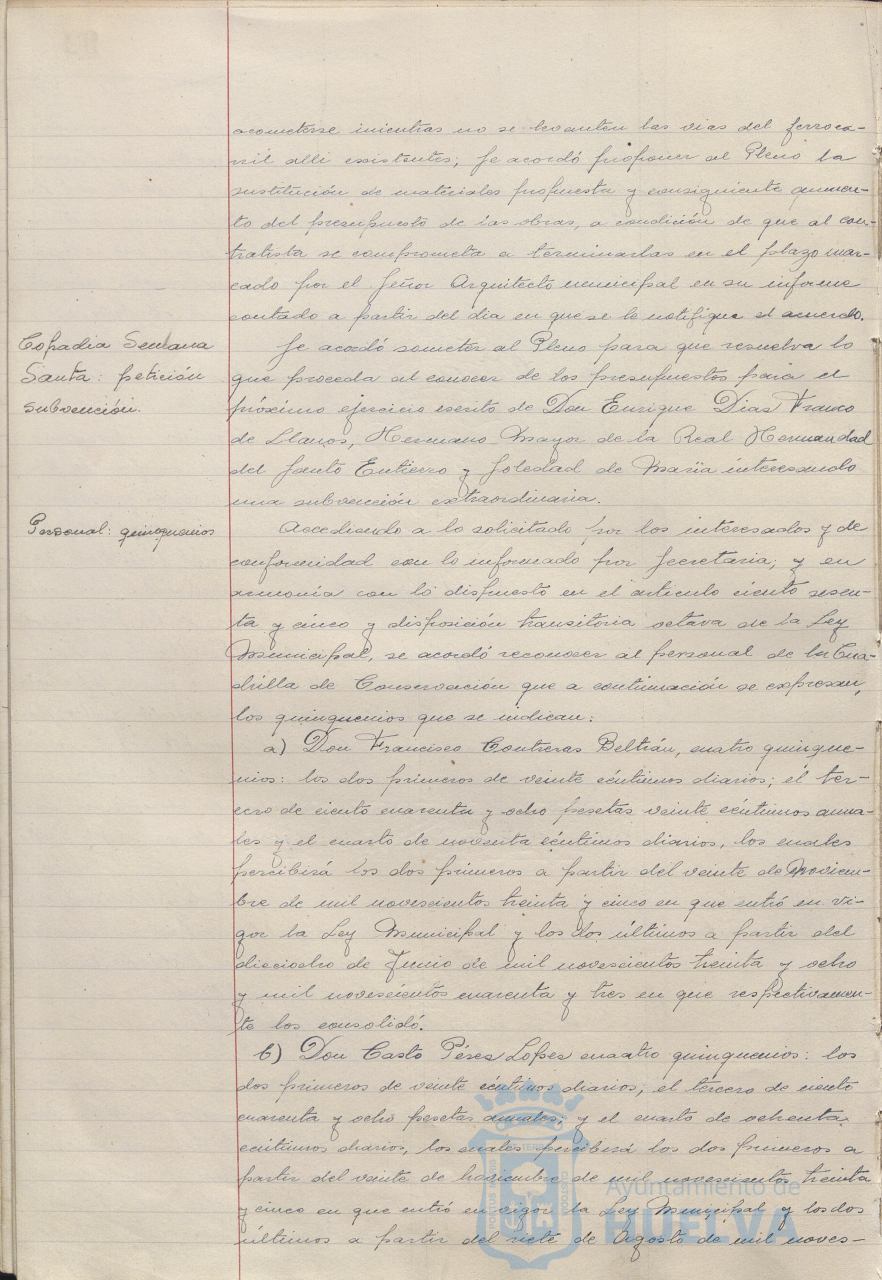 acometerse mientras no se levanten las vias del ferroca-
rril alli existentes; se acordó proponer al Pleno la
sustitución de materiales propuesta y consiguiente aumen-
to del presupuesto de las obras, a condición de que al con-
tratista se comprometa a terminarlas en el plazo mar-
cado por el Señor Arquitecto municipal en su informe
contado a partir del dia en que se le notifique el acuerdo.
Cofradia Semana
Santa: petición
subvención.
Se acordó someter al Pleno para que resuelva lo
que proceda al conocer de los presupuestos para el
próximo ejercicio escrito de Don Enrique Dias Franco
de Llanos, Hermano Mayor de la Real Hermandad
del Santo Entierro y Soledad de Maria interesando
una subvención extraordinaria.
Personal: quinquenios
Accediendo a lo solicitado por los interesados y de
conformidad con lo informado por Secretaria; y en
armonia con lo dispuesto en el articulo ciento sesen-
ta y cinco y disposición transitoria octava de la Ley
Municipal, se acordó reconocer al personal de la Cua-
drilla de Conservación que a continuación se expresan,
los quinquenios que se indican:
a) Don Francisco Contreras Beltrán, cuatro quinque-
nios: los dos primeros de veinte céntimos diarios; él ter-
cero de ciento cuarenta y ocho pesetas veinte céntimos anua-
les y el cuarto de noventa céntimos diarios, los cuales
percibirá los dos primeros a partir del veinte de Noviem-
bre de mil novescientos treinta y cinco en que entró en vi-
gor la Ley Municipal y los dos últimos a partir del
dieciocho de Junio de mil novescientos treinta y ocho
y mil novescientos cuarenta y tres en que respectivamen-
te los consolidó.
b) Don Casto Péres Lopes cuatro quinquenios: los
dos primeros de veinte céntimos diarios; el tercero de ciento
cuarenta y ocho pesetas anuales; y el cuarto de ochenta
céntimos diarios, los cuales percibirá los dos primeros a
partir del veinte de Noviembre de mil novescientos treinta
y cinco en que entró en vigor la Ley Municipal y los dos
últimos a partir del siete de Agosto de mil noves-
Ayuntamiento de
HUELVA